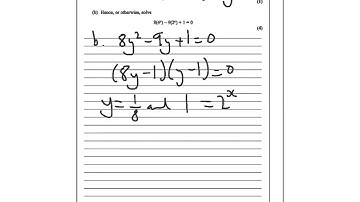 (1)
(b) Hence, or otherwise, solve
8(4ˣ) – 9(2ˣ) + 1 = 0
(4)
b. 8y² - 9y + 1 = 0
(8y - 1)(y - 1) = 0
y = 1/8 and 1 = 2ˣ